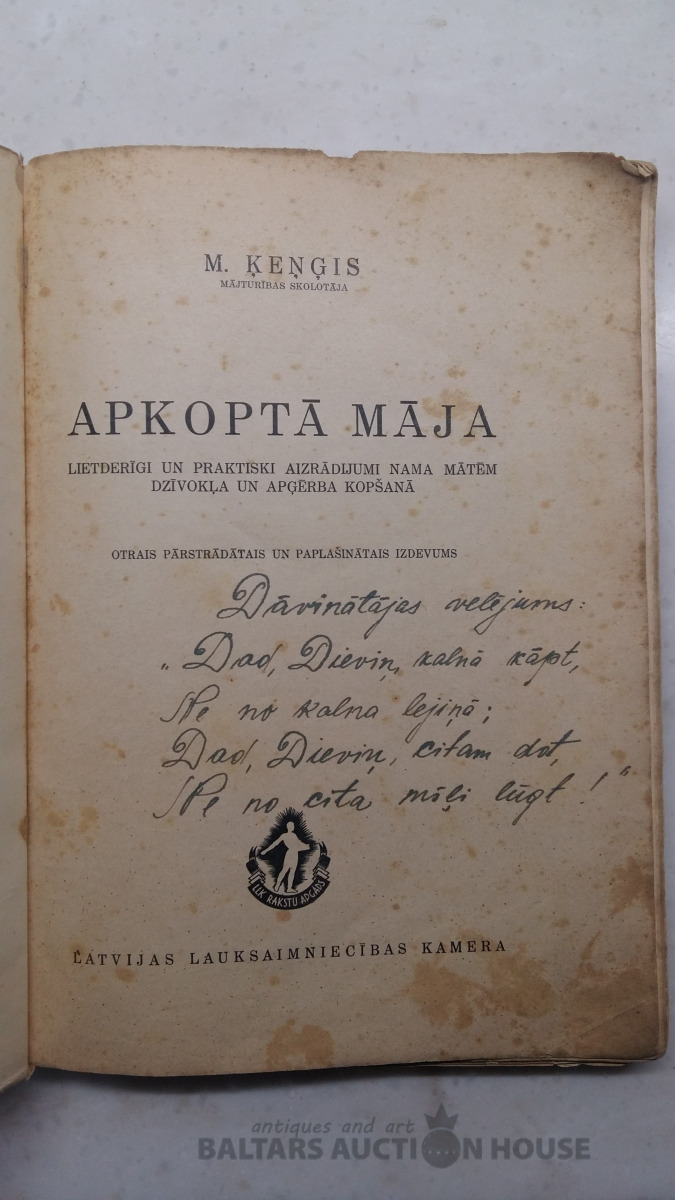 M. ĶEŅĢIS
MĀJTURĪBAS SKOLOTĀJA
APKOPTĀ MĀJA
LIETDERĪGI UN PRAKTISKI AIZRĀDIJUMI NAMA MĀTĒM
DZĪVOKĻA UN APĢĒRBA KOPŠANĀ
OTRAIS PĀRSTRĀDĀTAIS UN PAPLAŠINĀTAIS IZDEVUMS
Dāvinātājas velējums:
„Dod, Dieviņ, kalnā kāpt,
Ne no kalna lejiņā;
Dod, Dieviņ, citam dot,
Ne no cita mīļi lūgt!"
LLK RAKSTU APGĀDS
LATVIJAS LAUKSAIMNIECĪBAS KAMERA
antiques and art
BALTARS AUCTION HOUSE